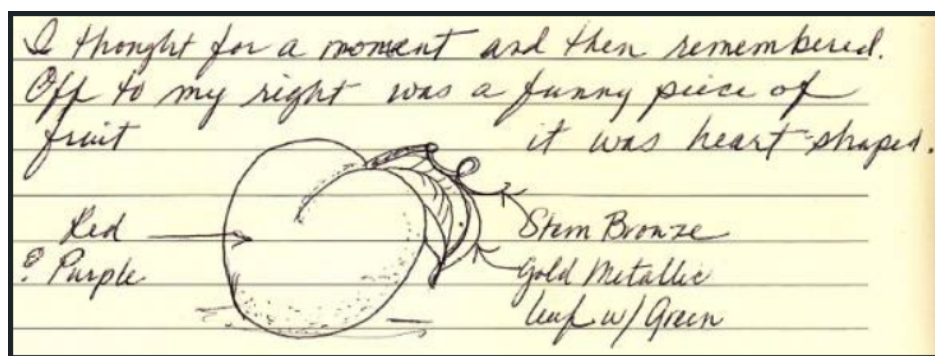 I thought for a moment and then remembered.
Off to my right was a funny piece of
fruit it was heart-shaped.
Red
? Purple
Stem Bronze
Gold Metallic
leaf w/ Green